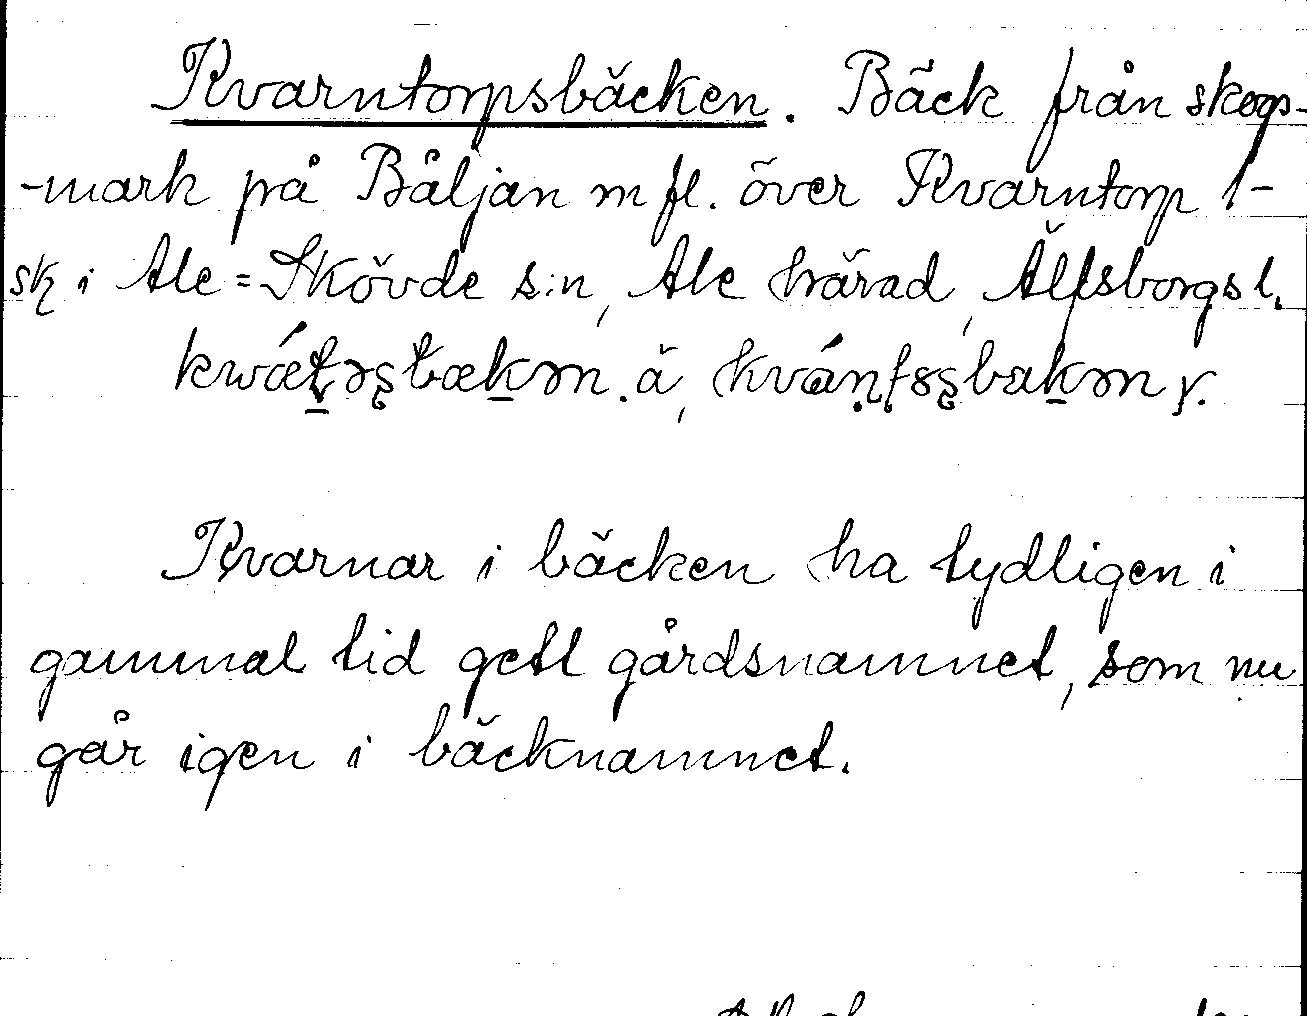 Kvarntorpsbäcken. Bäck från skogs-
-mark på Båljan m fl. över Kvarntorp 1-
sk i Ale=Skövde s:n, Ale härad, Älfsborgs l.
ä,
Kvarnar i bäcken ha tydligen i
gammal tid gett gårdsnamnet, som nu
går igen i bäcknamnet.